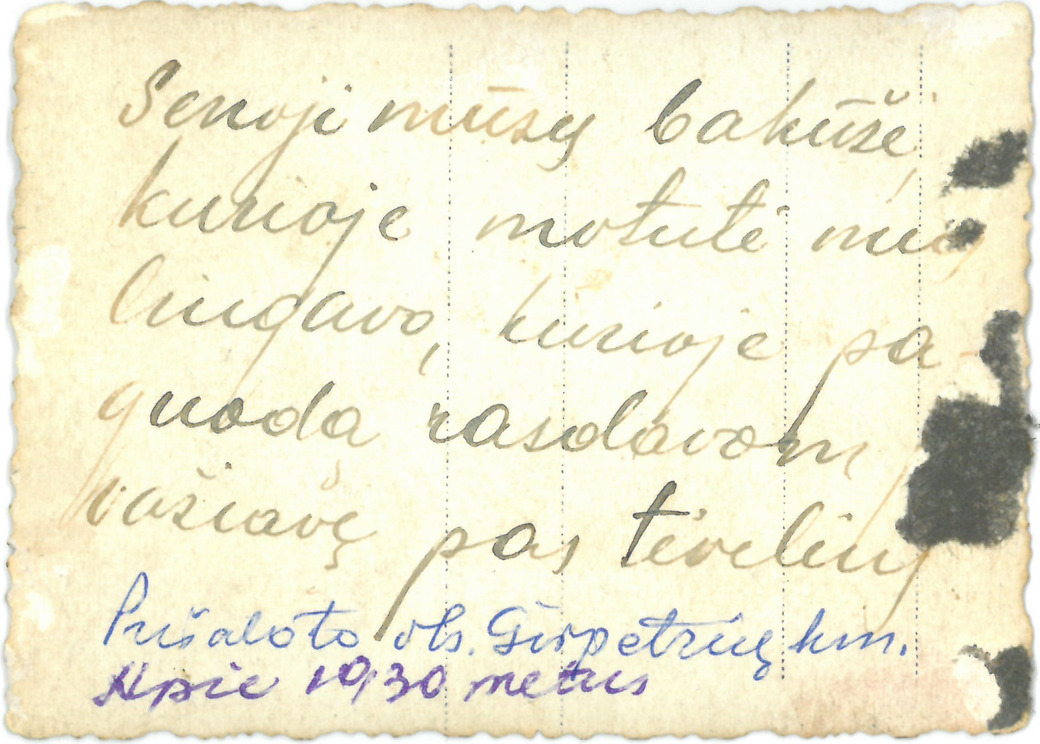 Senoji mūsų bakūžė,
kurioje motutė mus
lingavo, kurioje pa-
guodą rasdavom
važiavę pas tėvelius
Pušaloto vls. Girpetrių km.
Apie 1930 metus